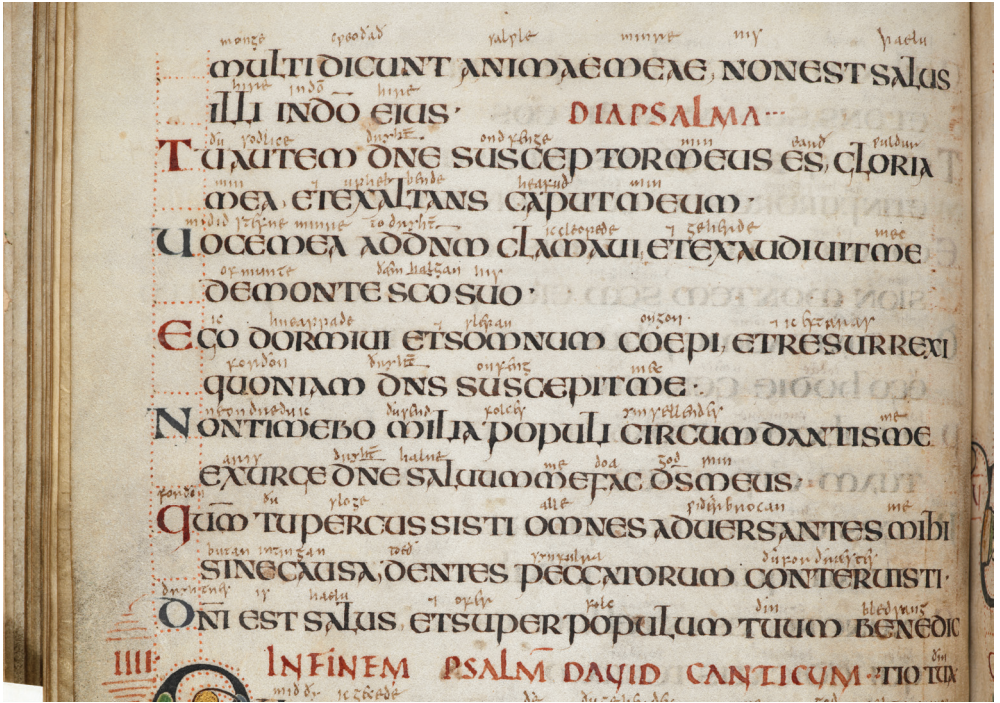 monge cweoðað sawle minre nis haelu
MULTI DICUNT ANIMAE MEAE, NON EST SALUS
hire in gode hire
ILLI IN DŌ EIUS· DIAPSALMA···
ðu soðlice dryhť ondfenge min earð wuldur
TU AUTEM DN̄E SUSCEPTOR MEUS ES, GLORIA
min ⁊ uphebbende heafud min
MEA, ET EXALTANS CAPUT MEUM·
mid stefne minre to dryhť ic cleopede ⁊ geherde mec
UOCE MEA AD DN̄M CLAMAUI, ET EXAUDIUIT ME
of munte ðæm halgan his
DE MONTE SCŌ SUO·
ic hneappade ⁊ slepan ongon ⁊ ic eft aras
EGO DORMIUI ET SOMNUM COEPI, ET RESURREXI
forðon dryhť onfeng mec
QUONIAM DN̄S SUSCEPIT ME·
ne ondredu ic ðusend folces ymsellendes me
NON TIMEBO MILIA POPULI CIRCUMDANTIS ME
aris dryhť halne me doa god min
EXURGE DN̄E SALUUM ME FAC DS̄ MEUS·
forðon ðu sloge alle wiðerbrocan me
QUM̄ TU PERCUSSISTI OMNES ADUERSANTES MIHI
butan intingan toeð synfulra ðu forðræstes
SINE CAUSA, DENTES PECCATORUM CONTERUISTI·
dryhtnes is haelu ⁊ ofer folc ðin bledsung
DN̄I EST SALUS, ET SUPER POPULUM TUUM BENEDIC
ðin
IIII IN FINEM PSALM̄ DAVID CANTICUM·TIO TUA
mid ðy ic gecede